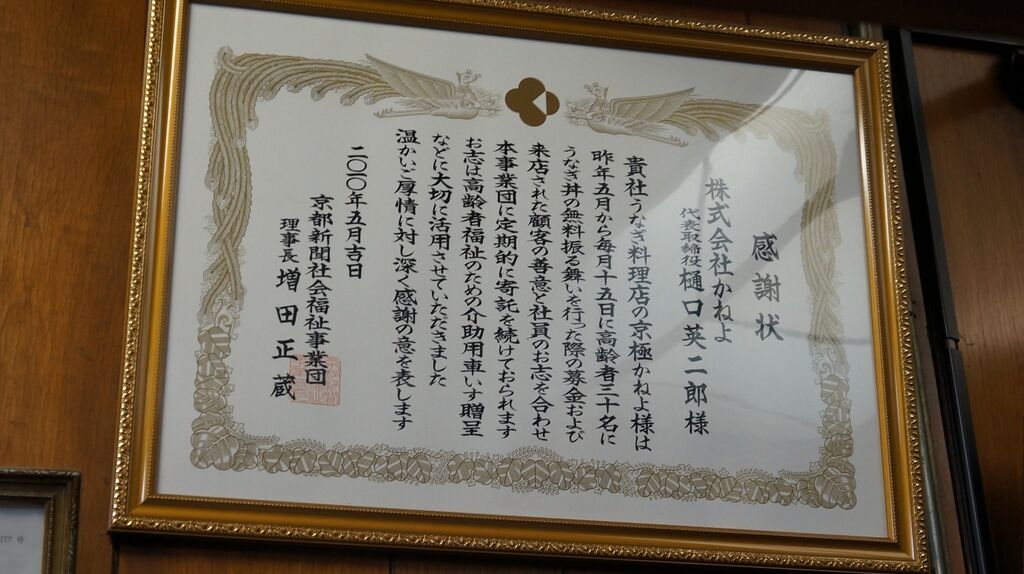 感謝状
株式会社かねよ
代表取締役 樋口英二郎様
貴社うなぎ料理店の京極かねよ様は
昨年五月から毎月十五日に高齢者三十名に
うなぎ丼の無料振る舞いを行った際の募金および
来店された顧客の善意と社員のお志を合わせ
本事業団に定期的に寄託を続けておられます
お志は高齢者福祉のための介助用車いす贈呈
などに大切に活用させていただきました
温かいご厚情に対し深く感謝の意を表します
二〇一〇年五月吉日
京都新聞社会福祉事業団
理事長 増田正蔵
277 号